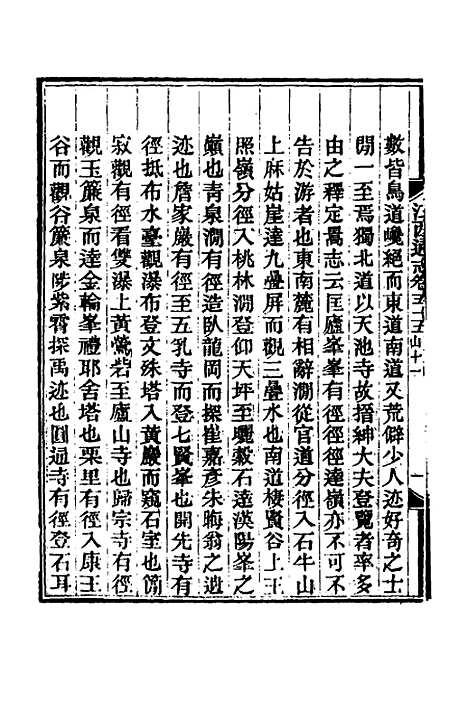 江西通志卷五十五 山十一
數皆鳥道巉絕而東道南道又荒僻少人迹好奇之士
閒一至焉獨北道以天池寺故搢紳大夫登覽者率多
由之釋定暠志云匡廬峯峯有徑徑徑達嶺亦不可不
告於游者也東南麓有相辭澗從官道分徑入石牛山
上麻姑崖達九疊屏而觀三疊水也南道棲賢谷上王
照嶺分徑入桃林澗登仰天坪至曬穀石達漢陽峯之
巓也青泉澗有徑造臥龍岡而探崔嘉彥朱晦翁之遺
迹也詹家巖有徑至五乳寺而登七賢峯也開先寺有
徑抵布水臺觀瀑布登文殊塔入黃巖而窺石室也簡
寂觀有徑看雙瀑上黃鶯砦至廬山寺也歸宗寺有徑
觀玉簾泉而達金輪峯禮耶舍塔也栗里有徑入康王
谷而觀谷簾泉陟紫霄探禹迹也圓通寺有徑登石耳